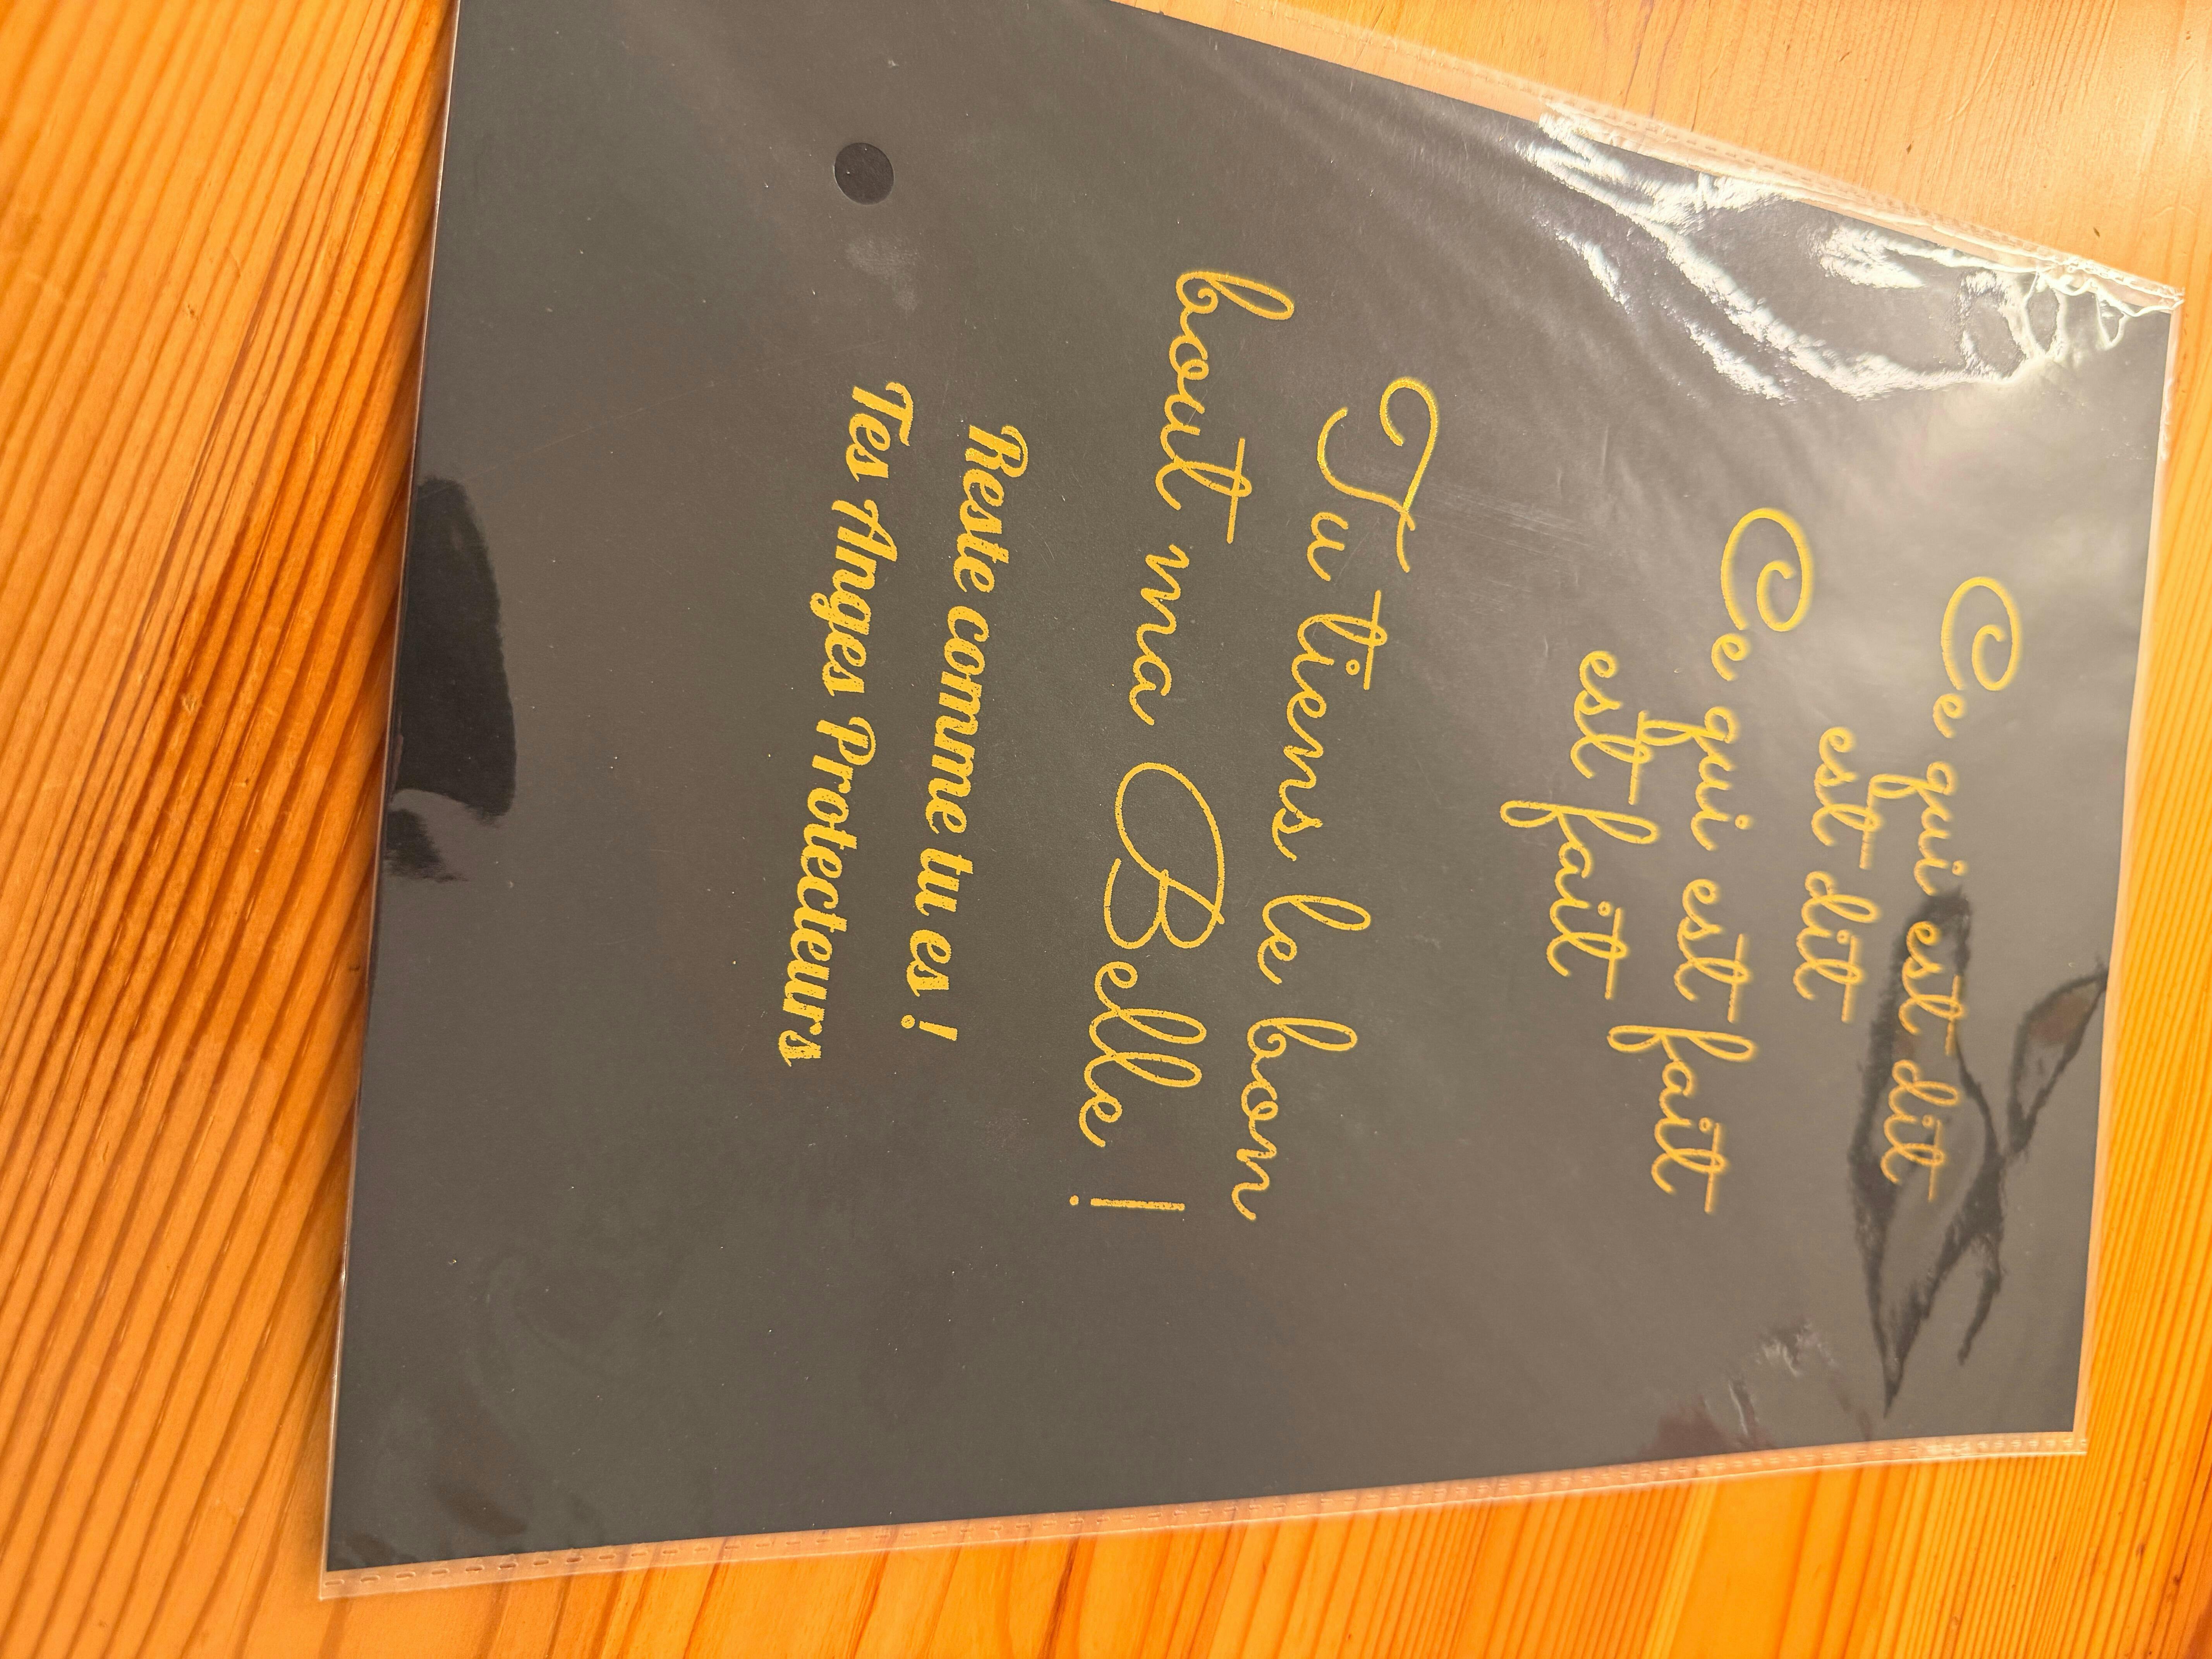 Ce qui est dit
est dit
Ce qui est fait
est fait
Tu tiens le bon
bout ma Belle !
Reste comme tu es !
Tes Anges Protecteurs